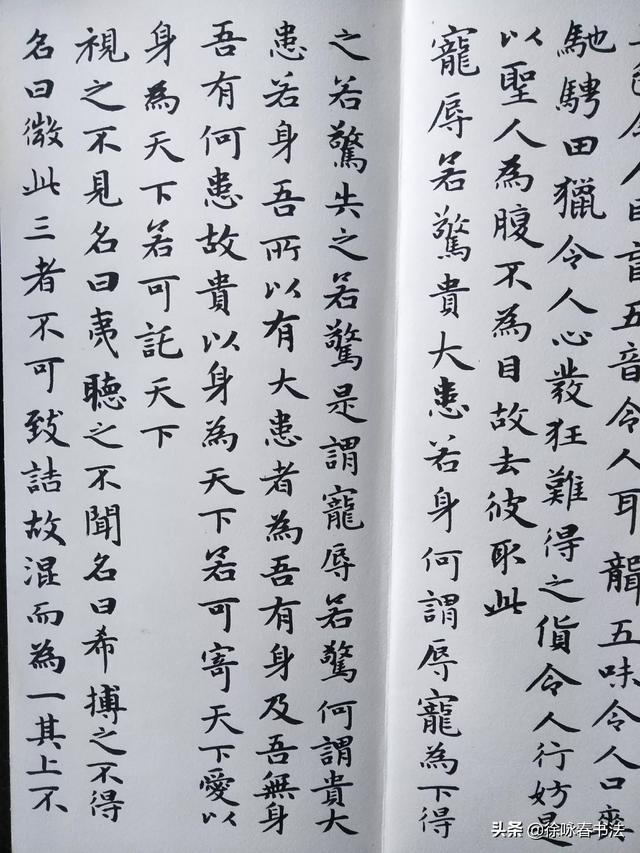 色令人目盲五音令人耳聾五味令人口爽
馳騁田獵令人心發狂難得之貨令人行妨是
以聖人為腹不為目故去彼取此
寵辱若驚貴大患若身何謂辱寵為下得
之若驚失之若驚是謂寵辱若驚何謂貴大
患若身吾所以有大患者為吾有身及吾無身
吾有何患故貴以身為天下若可寄天下愛以
身為天下若可託天下
視之不見名曰夷聽之不聞名曰希搏之不得
名曰微此三者不可致詰故混而為一其上不
头条 @徐咏春书法